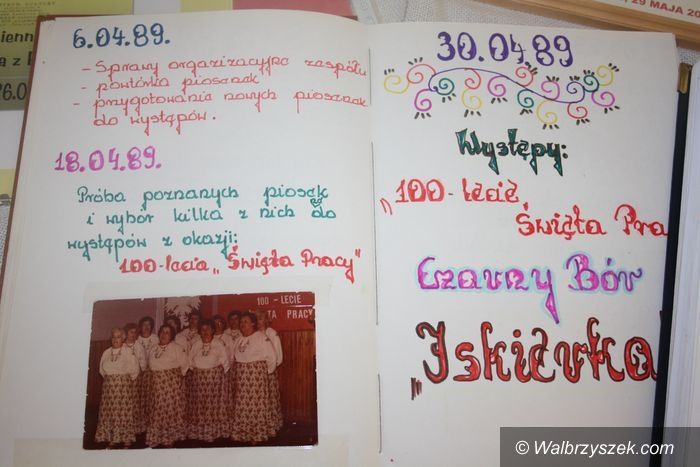 6.04.89.
- Sprawy organizacyjne zespołu
- powtórka piosnek
- przygotowania nowych piosnek
do występów.
18.04.89.
Próba poznanych piosęk
i wybór kilka z nich do
występów z okazji:
100-lecia „Święta Pracy"
100 - LECIE
TA PRACY
30.04.89
Występy:
„100-lecie
Święta Pra
Czarny Bór
"Iskierka
29 MAJA 20
ienn
ą z
6.0
© Walbrzyszek.com